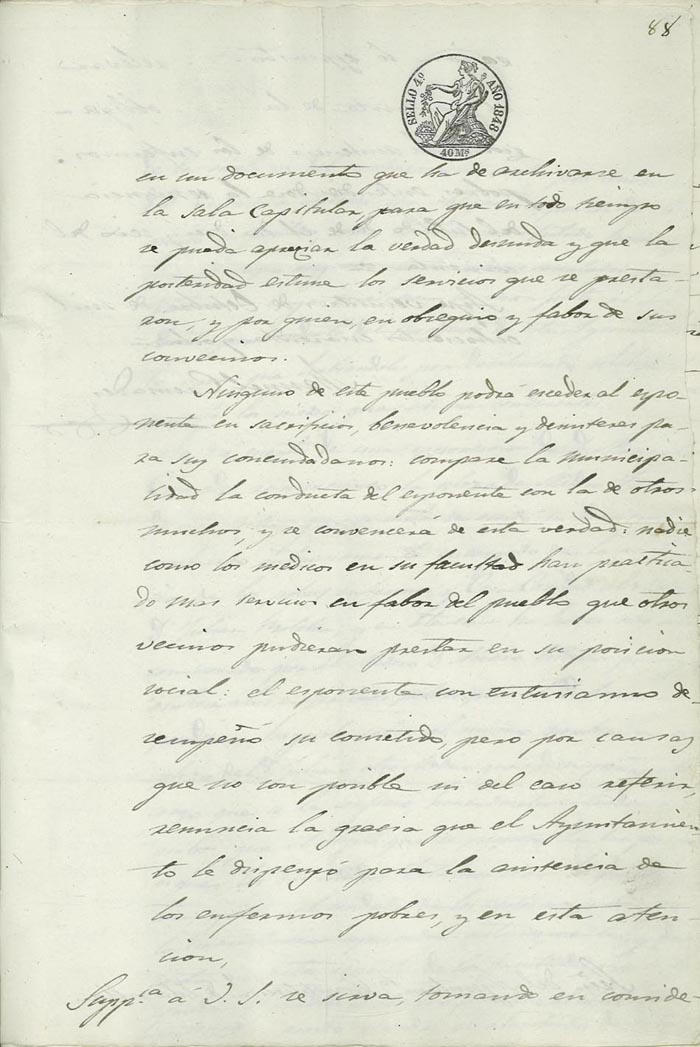 88
SELLO 4º AÑO 1848
40 Ms
en un documento que ha de archivarse en
la Sala Capitular, para que en todo tiempo
se pueda apreciar la verdad desnuda y que la
posteridad estime los servicios que se presta-
ron, y por quien, en obsequio y fabor de sus
convecinos.
Ninguno de este pueblo podrá exceder al espo-
nente en sacrificios, benevolencia y desinteres pa-
ra sus conciudadanos: compare la Municipa-
lidad la conducta del esponente con la de otros
muchos, y se convencerá de esta verdad: nadie
como los medicos en su facultad han practica
do mas servicios en fabor del pueblo que otros
vecinos pudieran prestar en su posicion
social: el esponente con entusiasmo de-
sempeñó su cometido, pero por causas
que no son posible ni del caso referir,
renuncia la gracia que el Ayuntamien-
to le dispensó para la asistencia de
los enfermos pobres, y en esta aten-
cion,
Suppca á V. S. se sirva, tomando en conside-